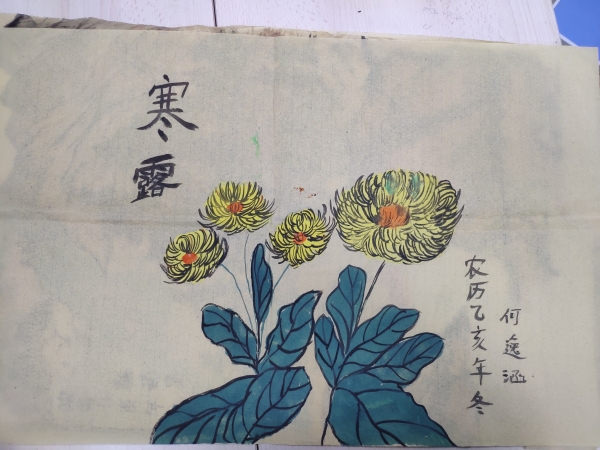 寒露
农历乙亥年冬
何逸涵